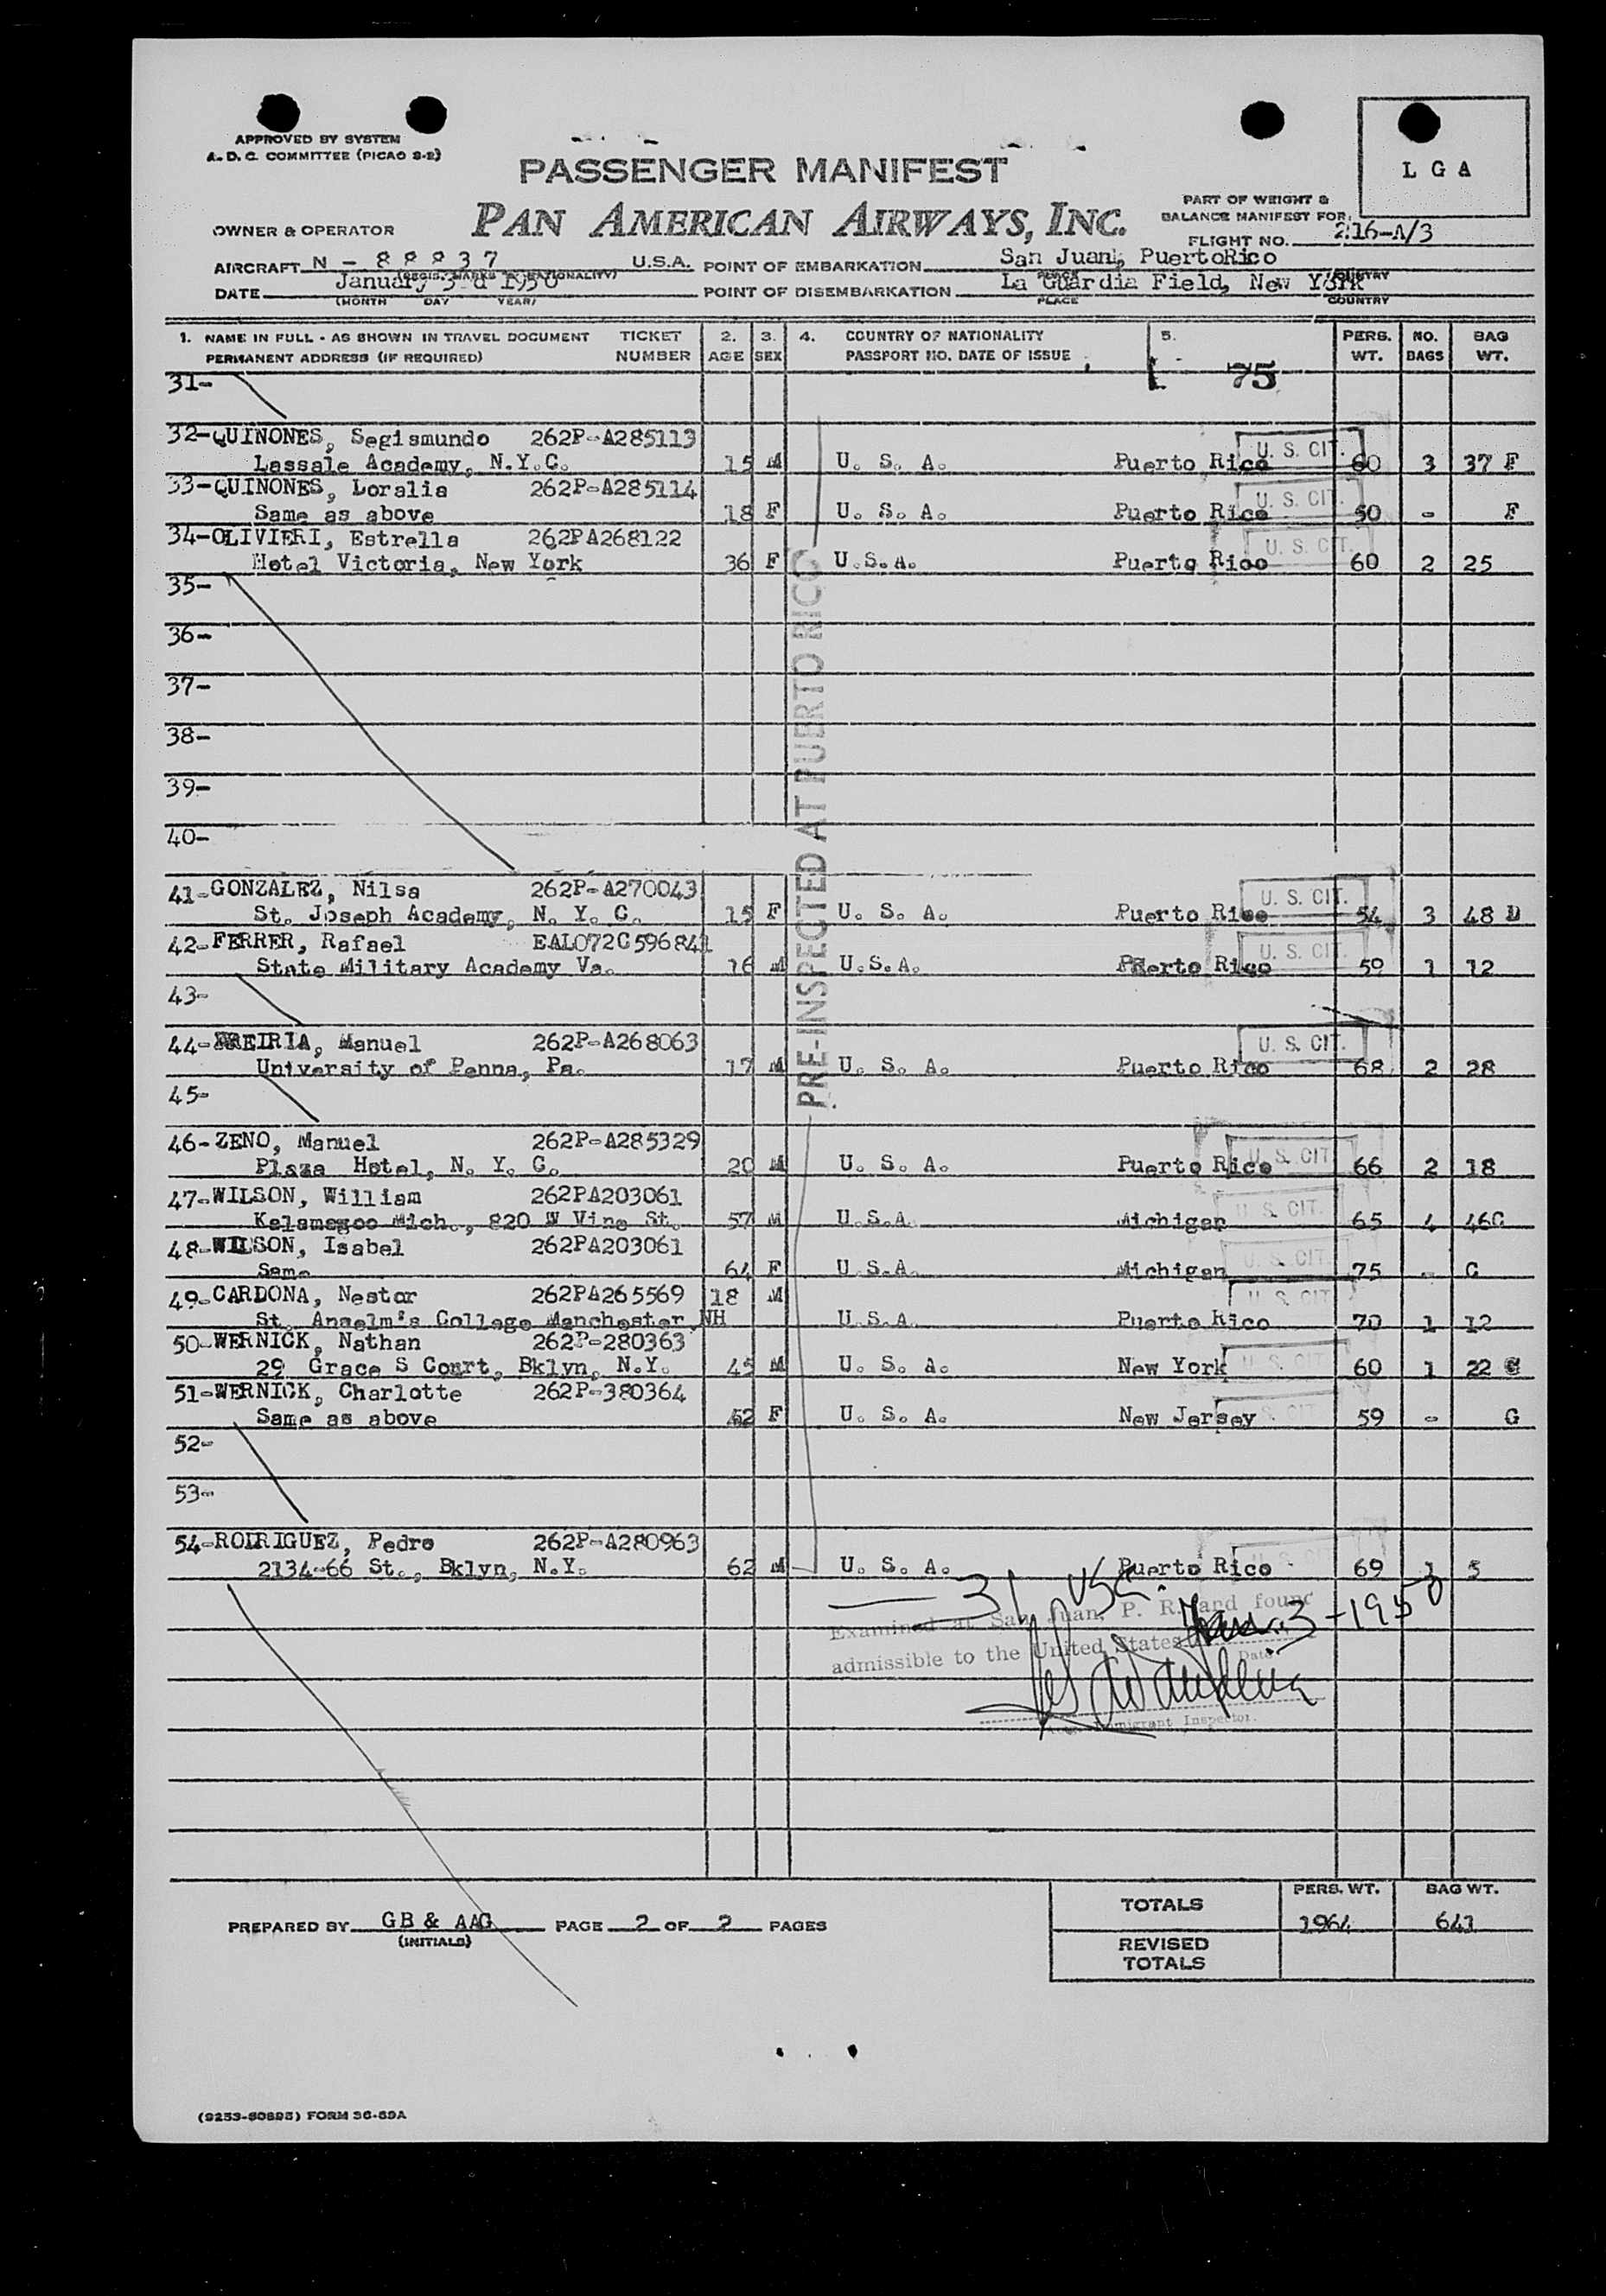 APPROVED BY SYSTEM
A. D. C. COMMITTEE (PICAO 2-2)
L G A
PASSENGER MANIFEST
PAN AMERICAN AIRWAYS, INC.
PART OF WEIGHT &
BALANCE MANIFEST FOR
OWNER & OPERATOR
FLIGHT NO. 216-A/3
AIRCRAFT N - 88837 U.S.A. POINT OF EMBARKATION San Juan, PuertoRico
(REGIS. MARKS & NATIONALITY) PLACE COUNTRY
DATE January 3rd 1950 POINT OF DISEMBARKATION La Guardia Field, New York
(MONTH DAY YEAR) PLACE COUNTRY
1. NAME IN FULL - AS SHOWN IN TRAVEL DOCUMENT TICKET 2. 3. 4. COUNTRY OF NATIONALITY 5. PERS. NO. BAG
PERMANENT ADDRESS (IF REQUIRED) NUMBER AGE SEX PASSPORT NO. DATE OF ISSUE WT. BAGS WT.
31- 75
32-QUINONES, Segismundo 262P-A285113 U. S. CIT.
Lassale Academy, N.Y.C. 15 M U. S. A. Puerto Rico 60 3 37 F
33-QUINONES, Loralia 262P-A285114 U. S. CIT.
Same as above 18 F U. S. A. Puerto Rico 50 - F
34-OLIVIERI, Estrella 262PA268122 U. S. CIT.
Hotel Victoria, New York 36 F U.S.A. Puerto Rico 60 2 25
35-
36-
37-
38-
39-
40-
PRE-INSPECTED AT PUERTO RICO
41-GONZALEZ, Nilsa 262P-A270043 U. S. CIT.
St. Joseph Academy, N. Y. C. 15 F U. S. A. Puerto Rico 54 3 48 D
42-FERRER, Rafael EAL072C596841 U. S. CIT.
State Military Academy Va. 16 M U.S.A. Puerto Rico 59 1 12
43-
44-FREIRIA, Manuel 262P-A268063 U. S. CIT.
University of Penna, Pa. 17 M U. S. A. Puerto Rico 68 2 28
45-
46-ZENO, Manuel 262P-A285329 U. S. CIT.
Plaza Hotel, N. Y. C. 20 M U. S. A. Puerto Rico 66 2 18
47-WILSON, William 262PA203061 U. S. CIT.
Kalamazoo Mich., 820 W Vine St. 57 M U.S.A. Michigan 65 4 46C
48-WILSON, Isabel 262PA203061 U. S. CIT.
Same 64 F U.S.A. Michigan 75 - C
49-CARDONA, Nestor 262PA265569 18 M U. S. CIT.
St. Anselm's College Manchester NH U.S.A. Puerto Rico 70 1 12
50-WERNICK, Nathan 262P-280363 U. S. CIT.
29 Grace S Court, Bklyn, N.Y. 45 M U. S. A. New York 60 1 22 G
51-WERNICK, Charlotte 262P-380364
Same as above 52 F U. S. A. New Jersey S. CIT 59 - G
52-
53-
54-RODRIGUEZ, Pedro 262P-A280963
2134-66 St., Bklyn, N.Y. 62 M U. S. A. Puerto Rico 69 1 5
31 USC.
Examined at San Juan, P. R. and found
admissible to the United States Jan. 3-1950
Date
Immigrant Inspector.
TOTALS PERS. WT. BAG WT.
1964 641
PREPARED BY GB & AAG PAGE 2 OF 2 PAGES
(INITIALS)
REVISED
TOTALS
(9253-50895) FORM 36-69A